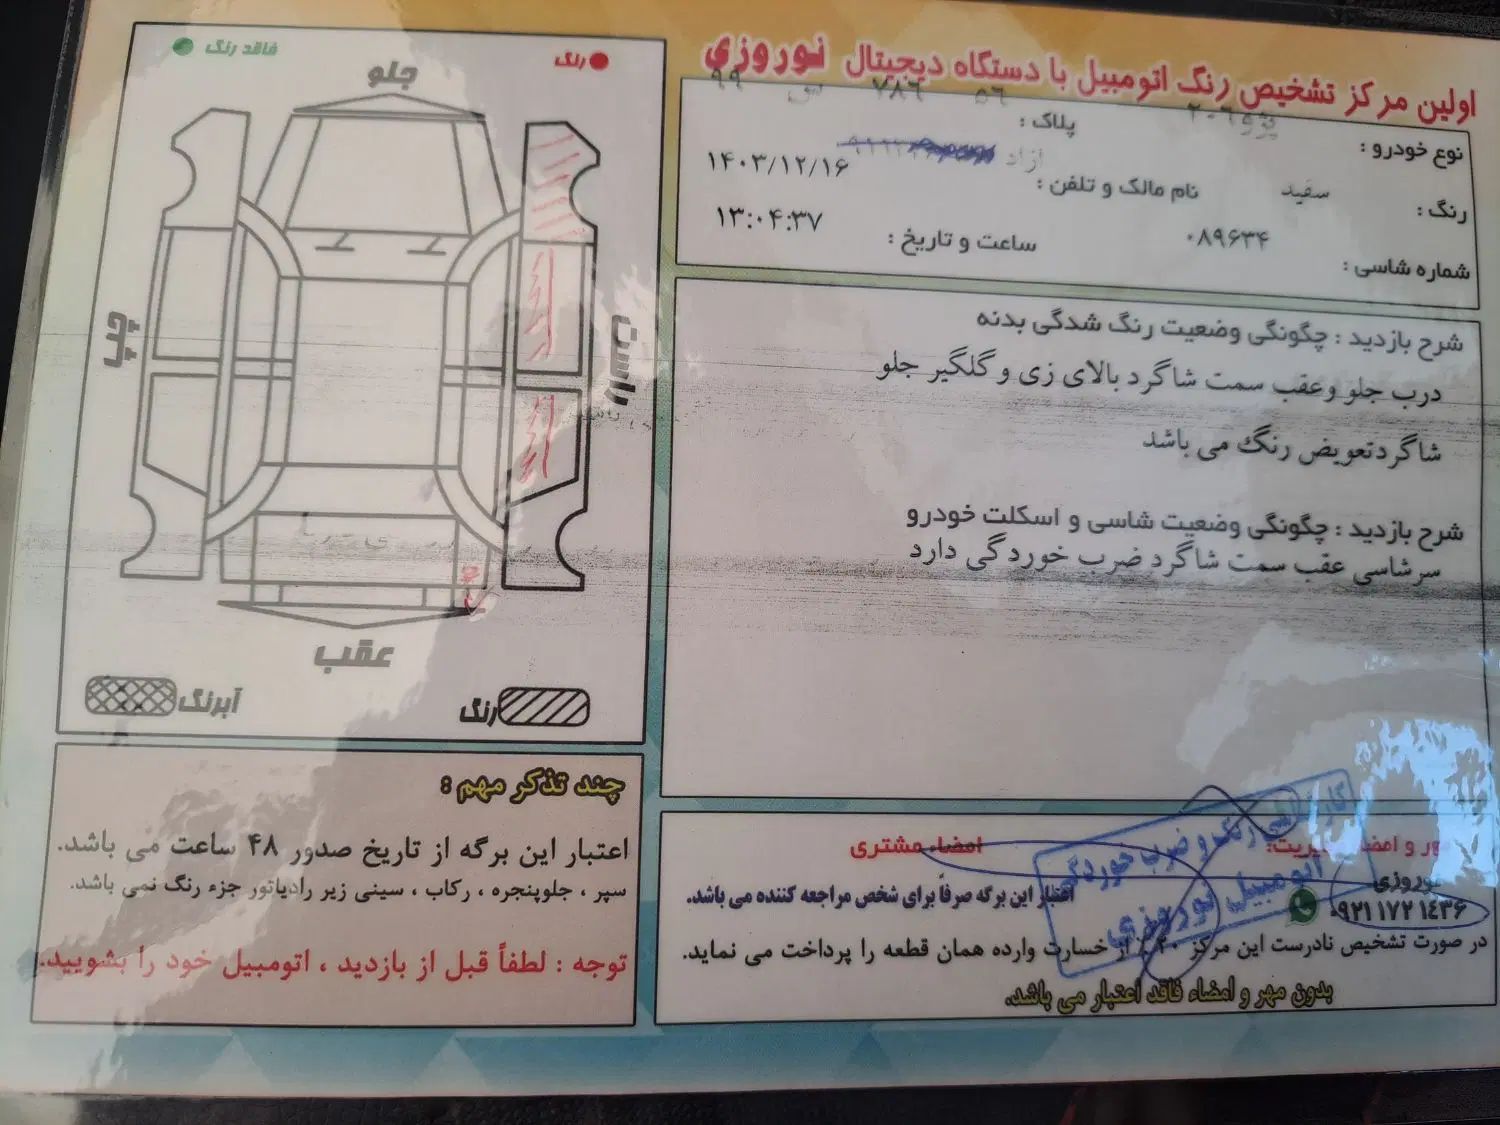 اولین مرکز تشخیص رنگ اتومبیل با دستگاه دیجیتال نوروزی
نوع خودرو : پژو ۲۰۶
پلاک : ۵۶ ۷۸۶ س ۹۹
رنگ : سفید
نام مالک و تلفن : آزاد
۱۴۰۳/۱۲/۱۶
شماره شاسی : ۰۸۹۶۳۴
ساعت و تاریخ : ۱۳:۰۴:۳۷
شرح بازدید : چگونگی وضعیت رنگ شدگی بدنه
درب جلو وعقب سمت شاگرد بالای زی و گلگیر جلو
شاگردتعویض رنگ می باشد
شرح بازدید : چگونگی وضعیت شاسی و اسکلت خودرو
سرشاسی عقب سمت شاگرد ضرب خوردگی دارد
رنگ
فاقد رنگ
جلو
راست
چپ
عقب
رنگ
آبرنگ
چند تذکر مهم :
اعتبار این برگه از تاریخ صدور ۴۸ ساعت می باشد.
سپر ، جلوپنجره ، رکاب ، سینی زیر رادیاتور جزء رنگ نمی باشد.
توجه : لطفاً قبل از بازدید ، اتومبیل خود را بشویید.
امضاء مشتری
نوروزی
۰۹۲۱ ۱۷۲ ۱۴۳۶
اعتبار این برگه صرفاً برای شخص مراجعه کننده می باشد.
در صورت تشخیص نادرست این مرکز ۲۰٪ از خسارت وارده همان قطعه را پرداخت می نماید.
بدون مهر و امضاء فاقد اعتبار می باشد.
رنگ و ضرب خوردگی
اتومبیل نوروزی